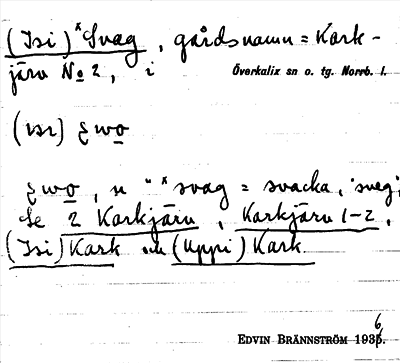 (Isi) *Svag, gårdsnamn = Kark-
järv No 2, i Överkalix sn o. tg. Norrb. l.
(ısı) ꜫwo
ꜫwo, n " *svag = svacka, 'sveg',
Se 2 Karkjärv, Karkjärv 1-2,
(Isi) Kark och (Uppi) Kark.
EDVIN BRÄNNSTRÖM 1936.